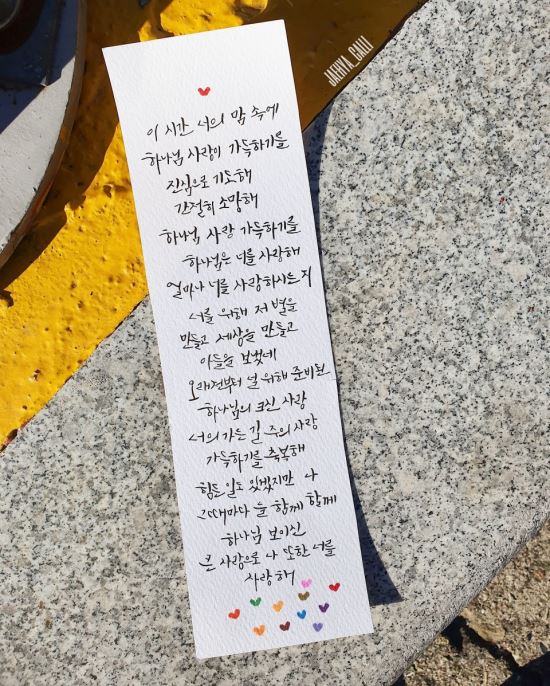 JAEHYA_CALI
이 시간 너의 맘 속에
하나님 사랑이 가득하기를
진심으로 기도해
간절히 소망해
하나님 사랑 가득하기를
하나님은 너를 사랑해
얼마나 너를 사랑하시는지
너를 위해 저 별을
만들고 세상을 만들고
아들을 보냈네
오래전부터 널 위해 준비된
하나님의 크신 사랑
너의 가는 길 주의 사랑
가득하기를 축복해
힘든 일도 있겠지만 나
그때마다 늘 함께 할께
하나님 보이신
큰 사랑으로 나 또한 너를
사랑해